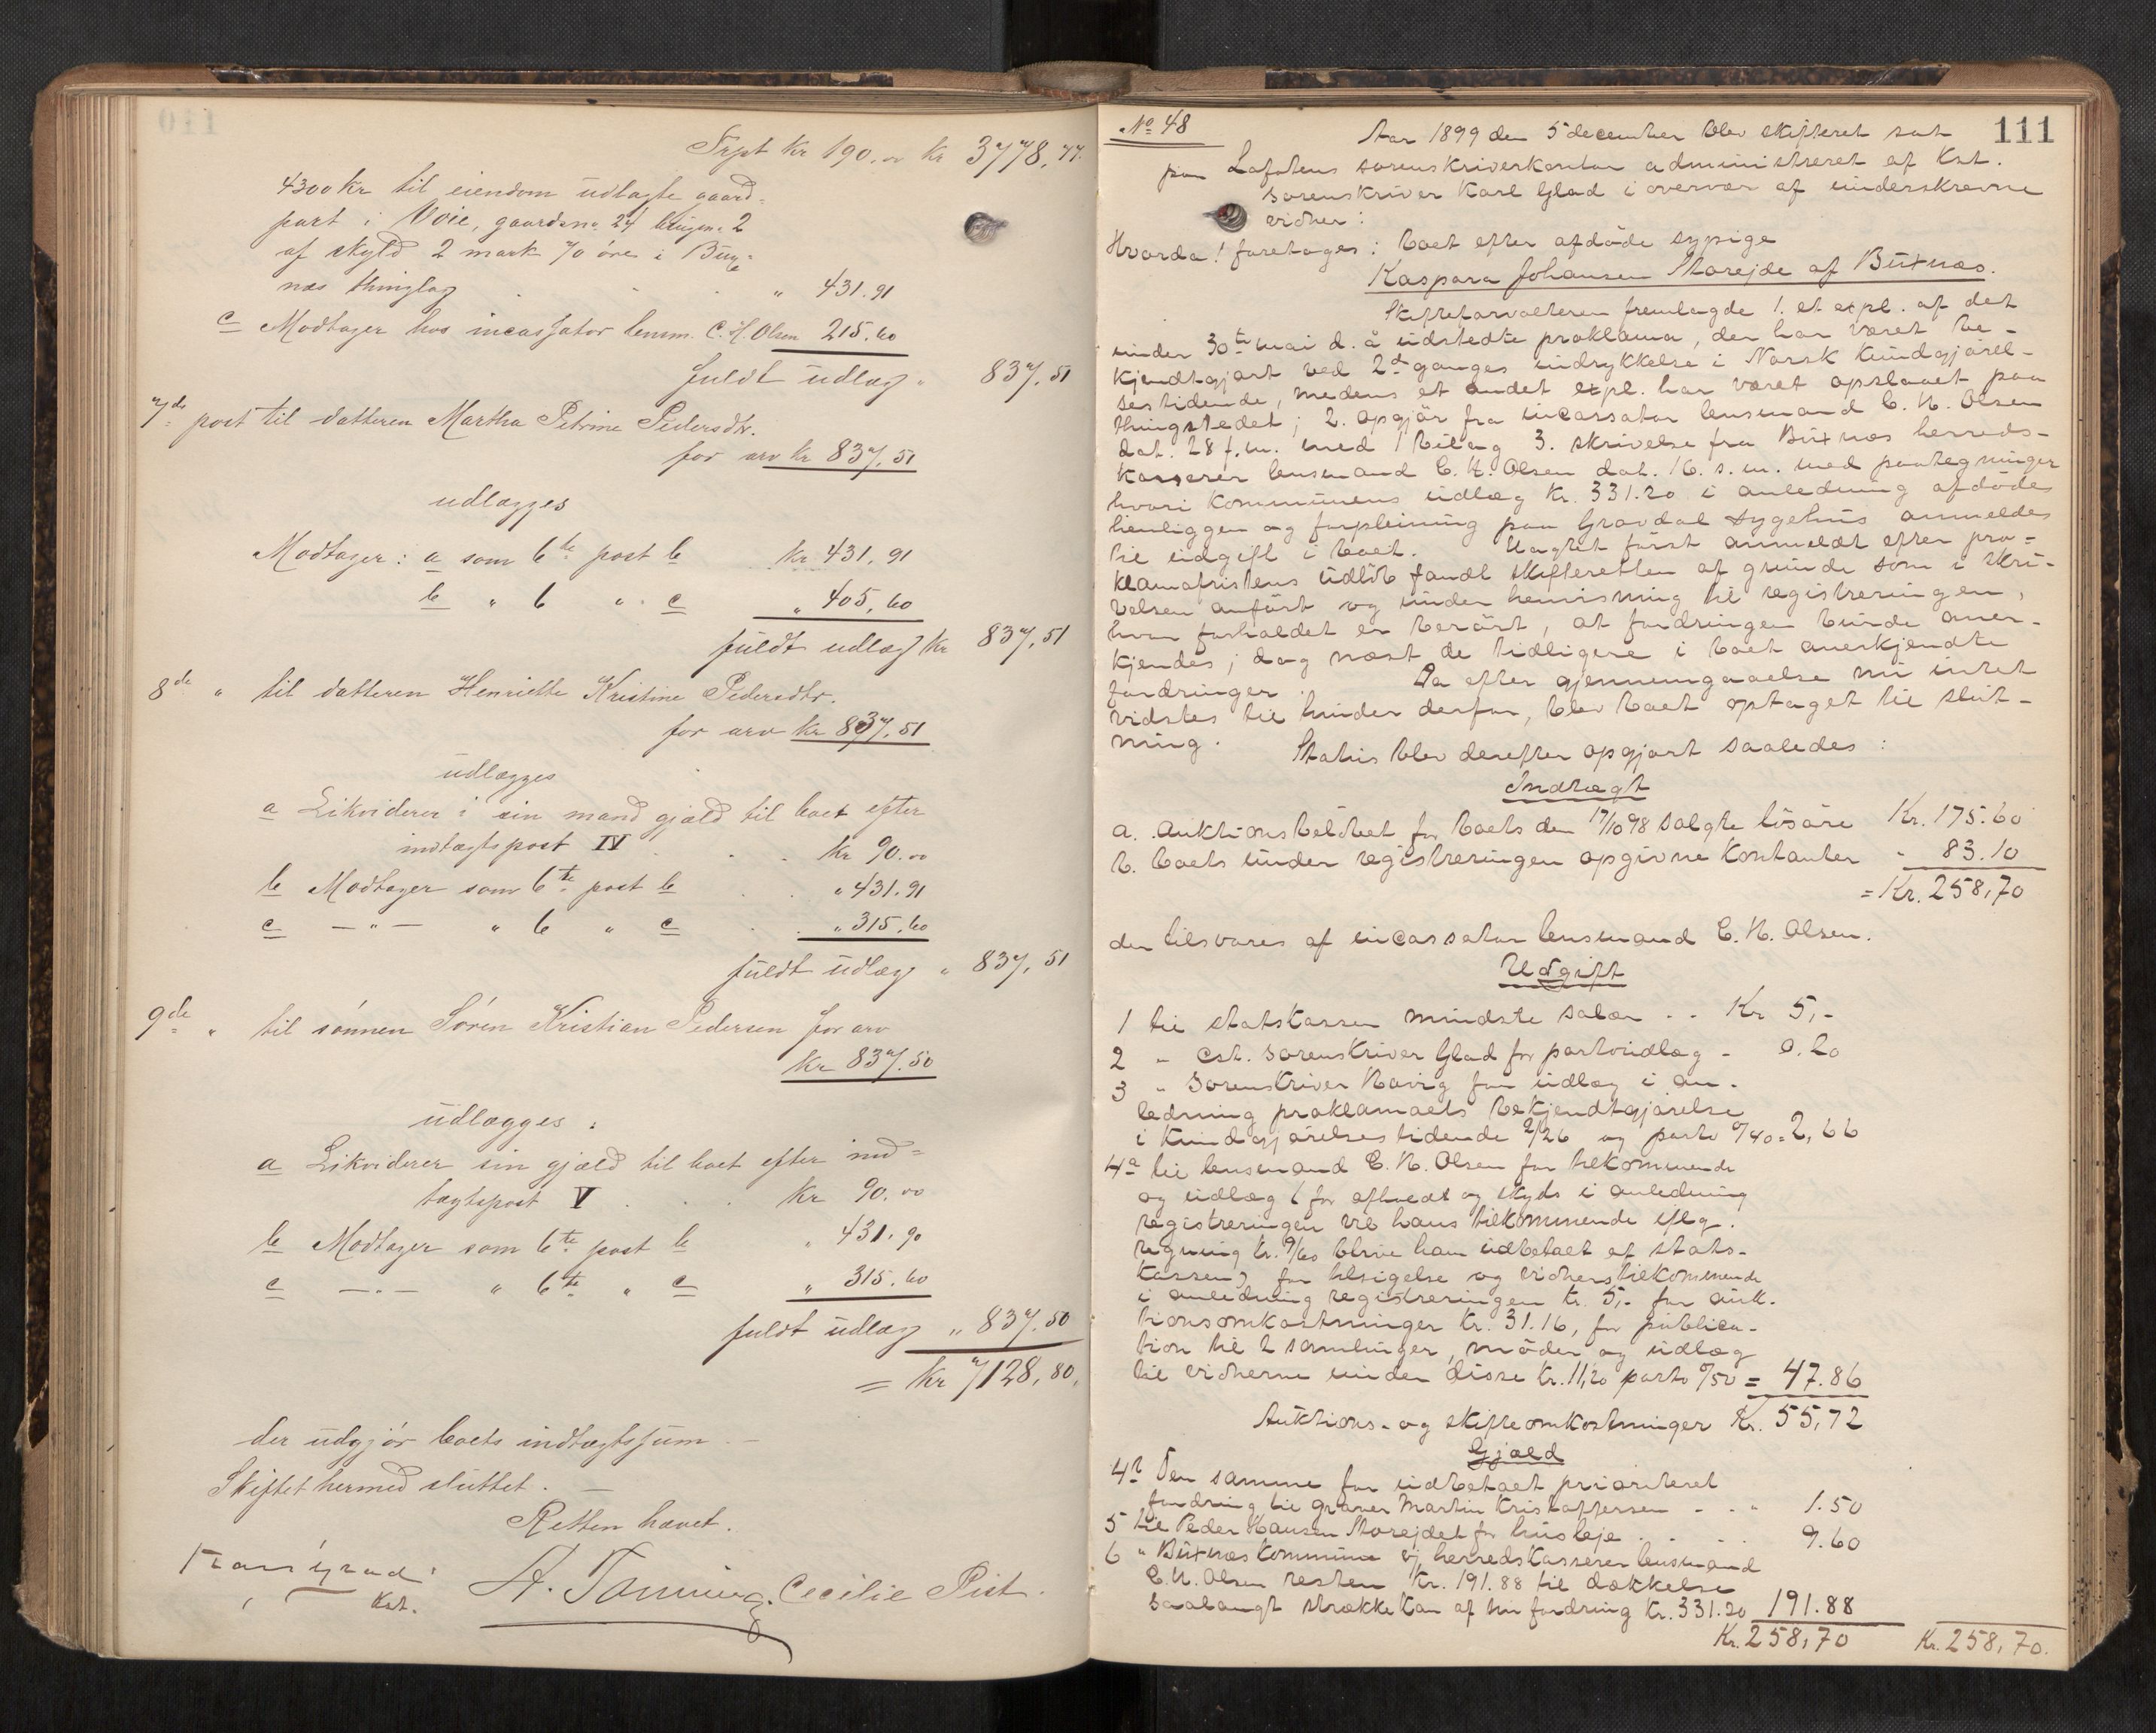 Trpt kr 190.00 kr 3778,77.
4300 kr til eiendom udlagte gaard=
part i Voie, gaardsno. 24 brugsno. 2
af skyld 2 mark 70 øre i Bux=
næs thinglag . . . " 431.91
c Modtager hos incassator lensm. C. H. Olsen 215.60
fuldt udlæg " 837,51
7de post til datteren Martha Petrine Pedersdtr.
for arv kr 837,51
udlægges
Modtager: a som 6te post b kr 431,91
b " 6 " c " 405,60
fuldt udlæg kr 837,51
8de " til datteren Henriette Kristine Pedersdtr.
for arv kr 837,51
udlægges
a Likviderer i sin mand gjæld til boet efter
indtægtspost IV . . . kr 90.00
b Modtager som 6te post b . . " 431.91
c — " — " 6 " c . . " 315.60
fuldt udlæg " 837,51
9de " til sønnen Søren Kristian Pedersen for arv
kr 837.50
udlægges:
a Likviderer sin gjæld til boet efter ind=
tægtspost V . . . kr 90.00
b Modtager som 6te post b " 431.90
c — " — " 6te " c " 315.60
fuldt udlæg " 837.50
= kr 7128,80.
der udgjør boets indtægtssum. —
Skiftet hermed sluttet. —
Retten hævet.
Karl Glad
Kst.
A. Tønning. Cecilie Pist.
No 48
111
Aar 1899 den 5 december blev skifteret sat
paa Lofotens sorenskriverkontor administreret af Kst.
sorenskriver Karl Glad i overvær af underskrevne
vidner:
Hvorda! foretoges: boet efter afdøde sypige
Kaspara Johansen Storejde af Buxnæs.
Skifteforvalteren fremlagde 1. et expl. af det
under 30te mai d. å udstedte proklama, der har været be-
kjendtgjort ved 2de ganges indrykkelse i Norsk Kundgjørel-
sestidende, medens et andet expl. har været opslaaet paa
thingstedet; 2. opgjør fra incassator lensmand C. H. Olsen
dat. 28 f. m. med 1 bilag 3. skrivelse fra Buxnæs herreds-
kasserer lensmand C. H. Olsen dat. 16. s. m. med paategninger
hvori kommunens udlæg kr. 331.20 i anledning afdødes
henliggen og forpleining paa Gravdal sygehus anmeldes
til udgift i boet. Uagtet først anmeldt efter pro-
klamafristens udløb fandt skifteretten af grunde som i skri-
velsen anført og under henvisning til registreringen,
hvor forholdet er berørt, at fordringen burde aner-
kjendes; dog næst de tidligere i boet anerkjendte
fordringer. Da efter gjennemgaaelse nu intet
vidstes til hinder derfor, blev boet optaget til slut-
ning. Status blev derefter opgjort saaledes:
Indtægt
a. Auktionsbeløbet for boets den 17/10 98 solgte løsøre Kr. 175.60
b. boets under registreringen opgivne kontanter - 83.10
= Kr. 258,70
der tilsvares af incassator lensmand C. H. Olsen.
Udgift
1 til statskassen mindste salær . . Kr 5,-
2 " cst. sorenskriver Glad for portoudlæg - 0.20
3 " Sorenskriver Havig for udlæg i an-
ledning proklamaets bekjendtgjørelse
i kundgjørelsestidende 2/26 og porto 0/40 = 2,66
4a til lensmand C. H. Olsen for tilkommende
og udlæg (for afholdt og skyds i anledning
registreringen vil hans tilkommende iflg.
regning kr. 9/60 blive ham udbetalt af stats-
kassen) for tilsigelse og vidners tilkommende
i anledning registreringen kr. 5,- for auk-
tionsomkostninger kr. 31.16, for publica-
tion til 2 samlinger, møder og udlæg
til vidnerne under disse kr. 11,20 porto 0/50 = 47.86
Auktions- og skifteomkostninger Kr. 55,72
Gjæld
4b Den samme for udbetalt prioriteret
fordring til graver Martin Kristoffersen - - " 1.50
5 til Peder Hansen Storejdet for husleje . . . . 9.60
6 " Buxnæs kommune v/ herredskasserer lensmand
C. H. Olsen resten kr. 191.88 til dækkelse
saalangt strække kan af sin fordring Kr. 331.20 191.88
Kr. 258,70 Kr. 258,70.